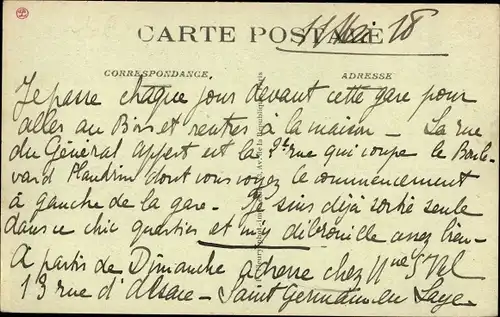 CARTE POSTALE
11 Mai 18
CORRESPONDANCE
ADRESSE
Je passe chaque jour devant cette gare pour
aller au Bois et rentrer à la maison – La rue
du Général Appert est la 2e rue qui coupe le Boule-
vard Flandrin dont vous voyez le commencement
à gauche de la gare – Je suis déjà sortie seule
dans ce chic quartier et m'y débrouille assez bien –
A partir de Dimanche adresse chez Mme
13 rue d'Alsace – Saint Germain en Laye